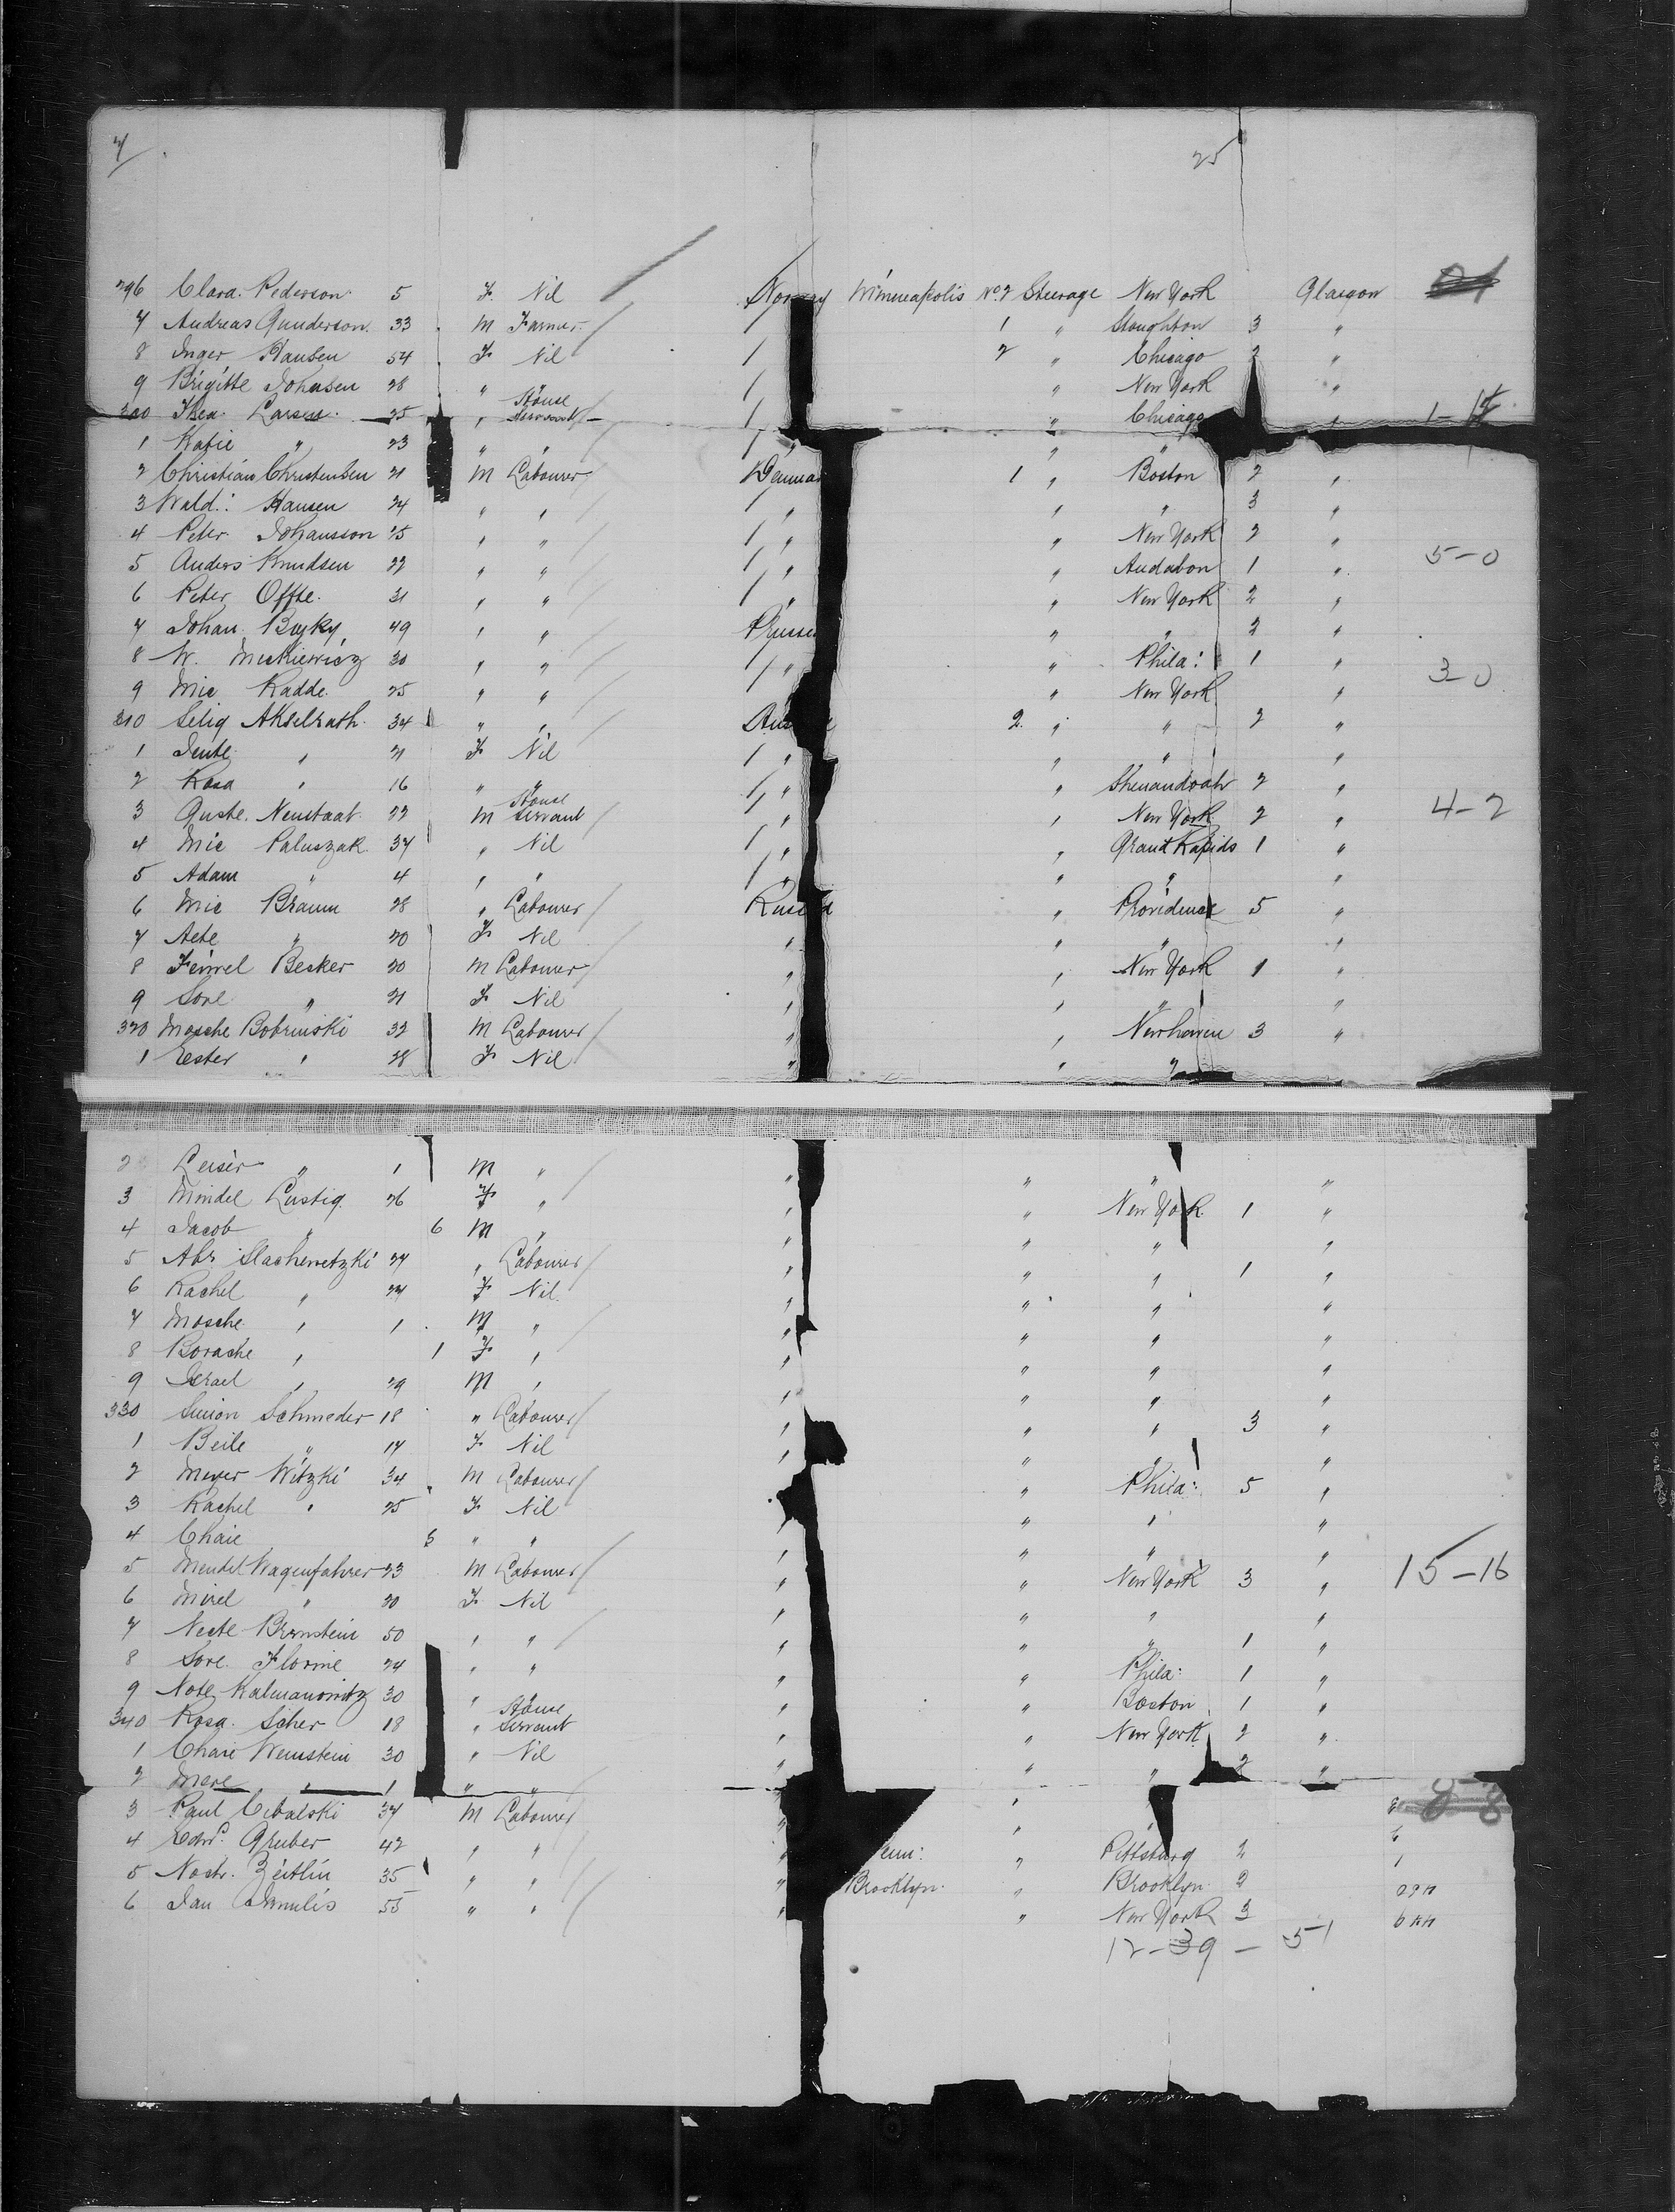 7
25
296 Clara Pederson 5 F Nil Norway Minneapolis No 2 Steerage New York Glasgow
7 Andreas Gunderson 33 M Farmer 1 " Stoughton 3 "
8 Inger Hansen 54 F Nil 2 " Chicago 2 "
9 Brigitte Johnsen 28 " " New York "
300 Thea Larsen 25 " House Servant " Chicago " 1-14
1 Katie " 23 " " " "
2 Christian Christensen 21 M Labourer Denmar 1 " Boston 2 "
3 Wald: Hansen 24 " " " " " 3 "
4 Peter Johansson 25 " " " " New York 2 "
5 Anders Knudsen 22 " " " " Audabon 1 " 5-0
6 Peter Offte 31 " " " " New York 2 "
7 Johan Boyky 49 " " Prussi " " 2 "
8 W. Mickiewicz 30 " " " " Phila: 1 "
9 Mic Kadde 25 " " " New York " 3-0
310 Selig Akselrath 34 " " Aus 2 " " 2 "
1 Dente " 21 F Nil " " " "
2 Rosa " 16 " " " " Shenandoah 2 "
3 Guste Neustaat 22 M House Servant " " New York 2 " 4-2
4 Mic Paluszak 37 " Nil " " Grand Rapids 1 "
5 Adam " 4 " " " " " "
6 Mic Braun 28 " Labourer Russia " Providence 5 "
7 Aete " 20 F Nil " " " "
8 Feiwel Besker 20 M Labourer " " New York 1 "
9 Sore " 21 F Nil " " " "
320 Mosche Bobrinski 32 M Labourer " " Newhaven 3 "
1 Eester " 28 F Nil " " " "
2 Leiser " 1 M " " " " "
3 Mindel Lustig 26 F " " " New York 1 "
4 Jacob " 6 M " " " " "
5 Abr Slachewetzki 27 " Labourer " " " 1 "
6 Rachel " 24 F Nil " " " "
7 Mosche " 1 M " " " " "
8 Borache " 1 F " " " " "
9 Israel " 29 M " " " " "
330 Simon Schmeder 18 " Labourer " " " 3 "
1 Beile " 17 F Nil " " " "
2 Meyer Witzki 34 M Labourer " " Phila: 5 "
3 Rachel " 25 F Nil " " " "
4 Chaie " " " " " "
5 Mendel Wagenfahrer 23 M Labourer " " New York 3 " 15-16
6 Mirel " 20 F Nil " " " "
7 Neste Bernstein 50 " " " " " 1 "
8 Sore Florine 24 " " " " Phila: 1 "
9 Note Kalmanowitz 30 " " " " Boston 1 "
340 Rosa Scher 18 " House Servant " " New York 2 "
1 Chaie Weinstein 30 " Nil " " " 2 "
2 Mere " 1 " " " "
3 Paul Cibalski 37 M Labourer " " " 8-8
4 Edwd. Gruber 42 " " " enn: " Pittsburg 2
5 Nostr. Zeitlin 35 " " " Brooklyn " Brooklyn 2
6 Jan 55 " " " " New York 3
12-39-51